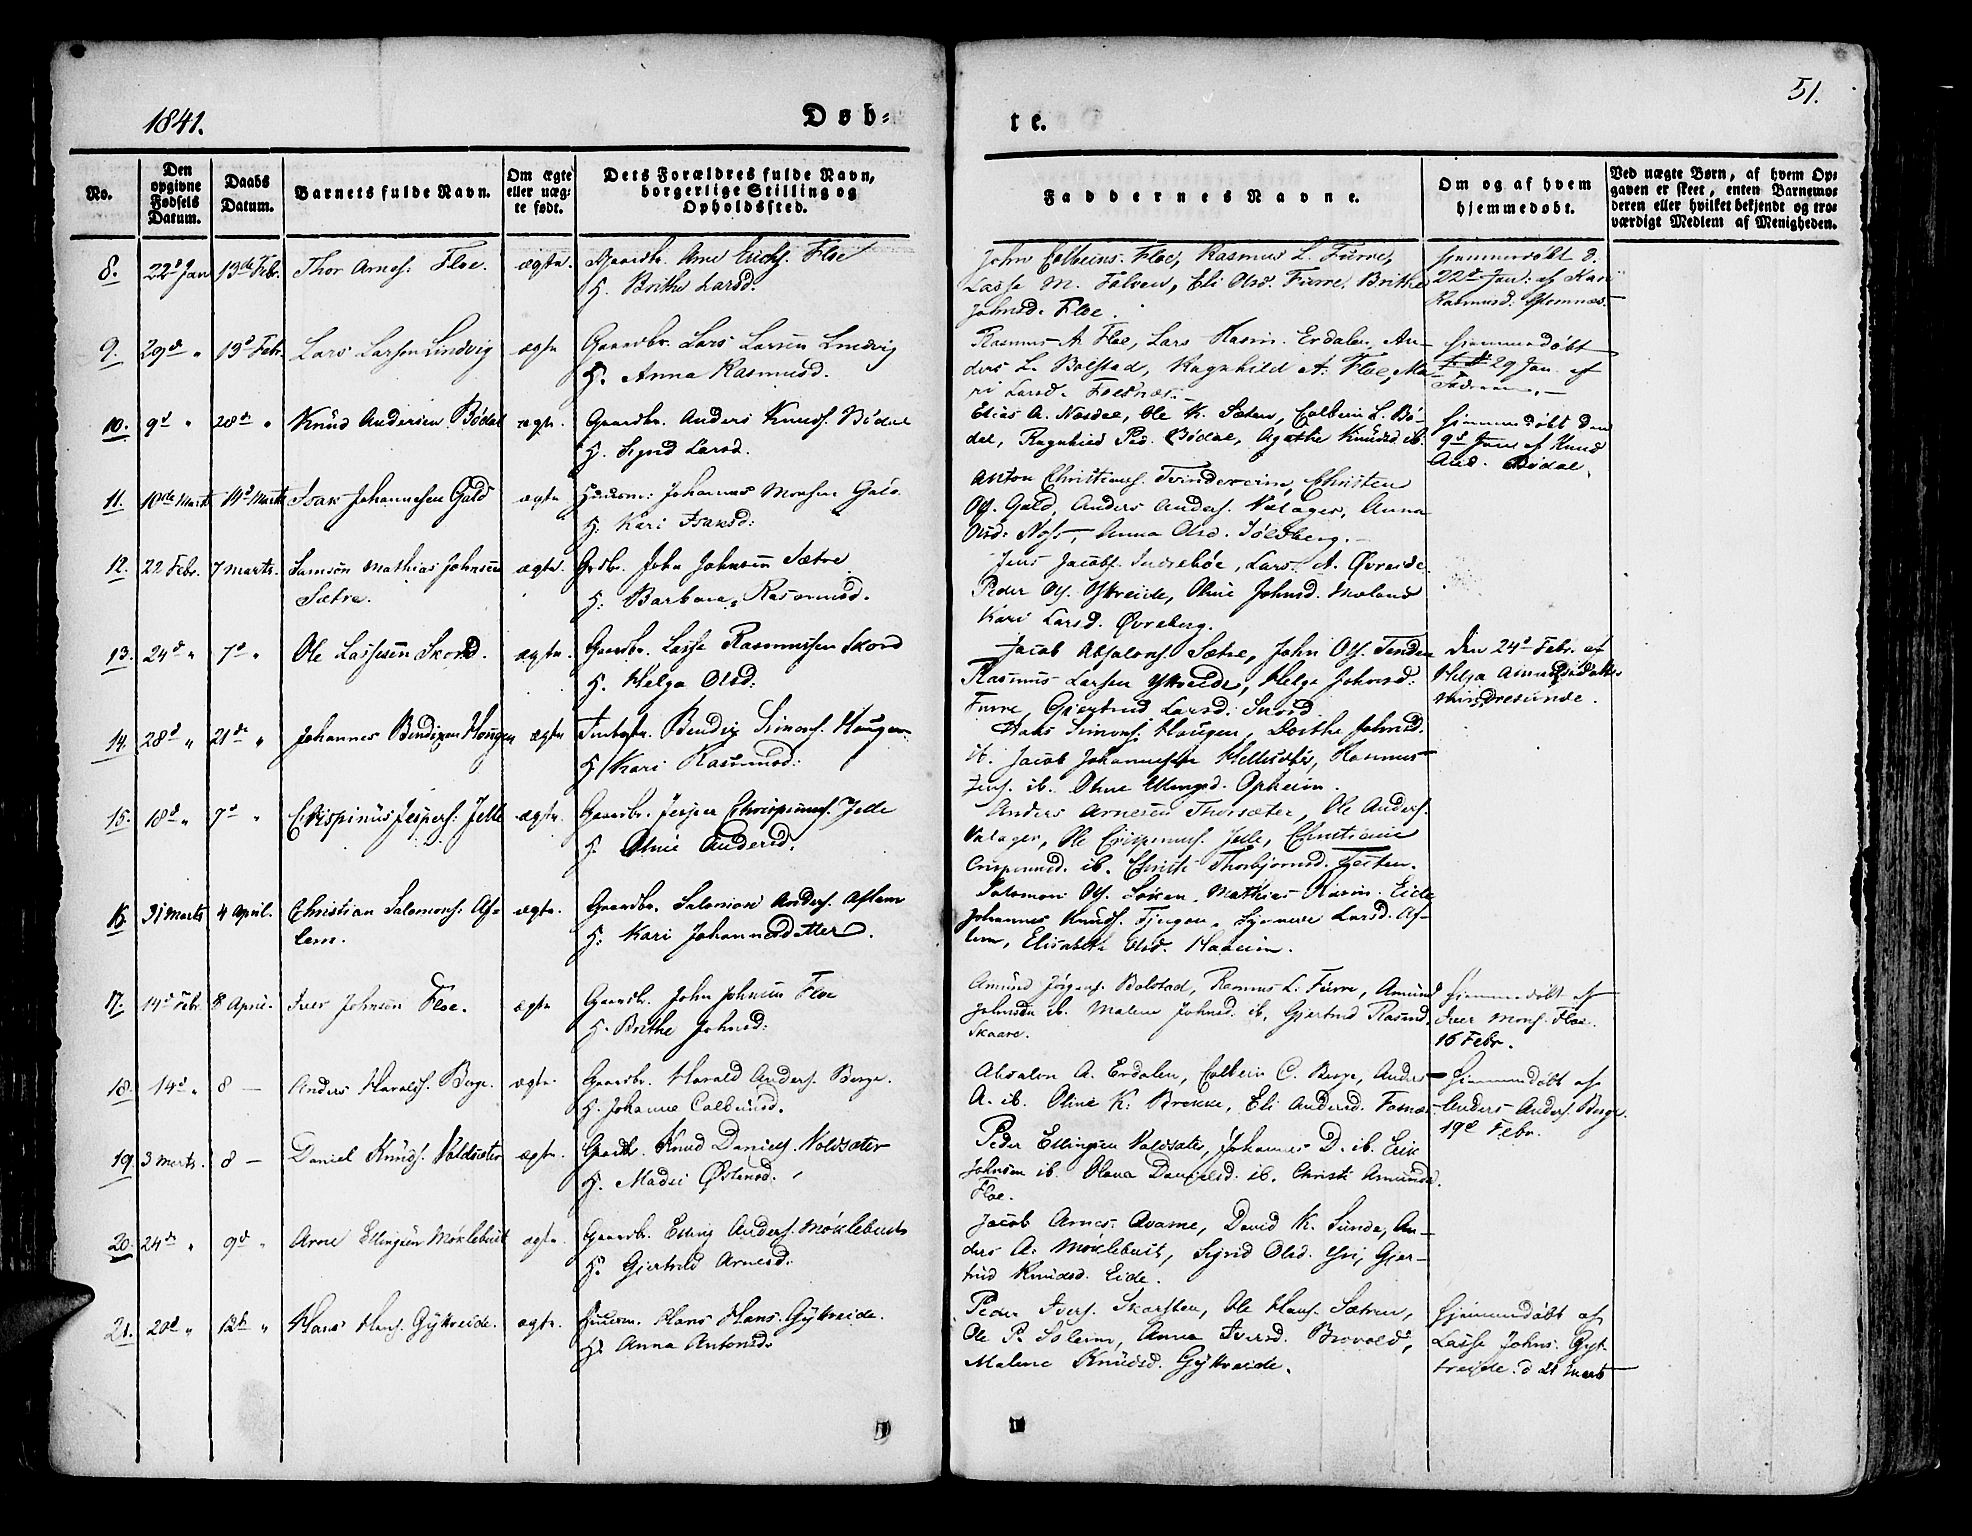 51.
1841.
Døb=
te.
No.
Den opgivne Fødsels Datum.
Daabs Datum.
Barnets fulde Navn.
Om ægte eller uæg= te født.
Dets Forældres fulde Navn, borgerlige Stilling og Opholdssted.
Faddernes Navne.
Om og af hvem hjemmedøbt.
Ved uægte Børn, af hvem Op= gaven er skeet, enten Barnemo= deren eller hvilket bekjendt og tro= værdigt Medlem af Menigheden.
8. 22d Jan 13de Febr. Thor Arnes. Floe. ægte. Gaardbr. Arne Erichs. Floe
H. Brithe Larsd.
John Colbeins. Floe, Rasmus L. Furre,
Lasse M. Falven, Eli Olsd. Furre, Brithe
Johnsd. Floe.
hjemmedøbt d.
22d Jan: af Kari
Rasmusd. Glomnæs.
9. 29de " 13d Febr. Lars Larsen Lindvig ægte Gaardbr. Lars Larsen Lindvig
H. Anna Rasmusd.
Rasmus A. Floe, Lars Rasm. Erdalen, An-
ders L. Bolstad, Ragnhild A. Floe, Ma-
ri Larsd.
hjemmedøbt
29 Jan. af
10. 9d " 28de " Knud Andersen Bødal ægte. Gaardbr. Anders Knuds. Bødal
H. Sigrid Larsd.
Elias A. Nesdal, Ole K. Sæten, Colbein L. Bø-
dal, Ragnhild Ped. Bødal, Agathe Knudsd. ib.
hjemmedøbt den
9d Jan af Knud
And. Bødal.
11. 10de Marts 14d Marts Isak Johannesen Gald ægte Huusm: Johannes Monsen Gald
H. Kari Isaksd:
Anton Christians. Tvindereim, Christen
Ols. Gald, Anders Anders. Valager, Anna
Olsd. Noss, Anna Olsd.
12. 22 Febr. 7 Marts. Samson Mathias Johnsen ægte. Grdbr. John Johnsen Sætre
Sætre. H: Barbara Rasmusd.
Jens Jacobs. Indrebøe, Lars A. Øvreide.
Peder Ols. Ytreide, Oline Johnsd. Moland
Kari Larsd. Øvreberg.
13. 24d " 7d " Ole Lassesen Skord. ægte. Gaardbr. Lasse Rasmussen Skord
H. Helga Olsd:
Jacob Absalons. Sætre, John Ols. Tenden
Rasmus Larsen Ytreide, Helge Johnsd:
Furre, Gjertrud Larsd. Skord
Den 24d Febr. af
Helga Amundsdatter
Mindresunde.
14. 28d " 21de " Johannes Bendixen Hougen ægte Bendix Simons. Haugen
H. Kari Rasmusd:
Mads Simons. Haugen, Dorthe Johnsd.
ib. Jacob Johannesen Hellesæter, Rasmus
Jens. ib. Oline Ellingsd. Opheim.
15. 18d " 7d " Chrispinus Jespers. Jelle ægte. Gaardbr. Jesper Chrispinus. Jelle
H. Oline Andersd.
Anders Arnesen Thorsæter, Ole Anders.
Valager, Ole Crispinus. Jelle, Christiane
Crispinusd. ib. Christi Thorbjørnsd. Fjesten.
16 31 Marts 4 April. Christian Salomons. Af= ægte. Gaardbr. Salomon Anders. Aflem
lem. H: Kari Johannesdatter.
Salomon Ols. Loken, Mathias Rasm. Eide
Johannes Knuds. Tjugen, Synneve Larsd. Af-
lem, Elisabeth Olsd. Haaeim.
17. 14d Febr. 8 April. Iver Johnsen Floe. ægte Gaardbr. John Johnsen Floe
H. Brithe Johnsd:
Amund Jørgens. Bolstad, Rasmus L. Furre, Amund
Johnsen ib. Malene Johnsd. ib. Gjertrud Rasmd.
Skaare.
Hjemmedøbt af
Iver Mons. Floe.
16 Febr.
18. 14d " 8 — Anders Haralds. Berge. ægte. Gaardbr. Harald Anders. Berge.
H. Johanne Colbeinsd.
Absalon A. Erdalen, Colbein C. Berge, Anders
A. ib. Oline K. Brække, Eli Andersd. Fosnæs
Hjemmedøbt af
Anders Anders. Berge
19d Febr.
19 3 Marts. 8 — Daniel Knuds. Voldsæter ægte. Knud Daniels. Voldsæter
H. Madei Østensd.
Peder Ellingsen Voldsæter, Johannes D. ib. Erik
Johnsen ib. Olava Danielsd. ib. Christi Amundsd.
Floe.
20. 24de " 9d " Arne Ellingsen Møklebust ægte. Gaardbr. Elling Anders. Møklebust
H. Gjertrud Arnesd.
Jacob Arnes. Qvame, David K. Sunde, An-
ders A. Møklebust, Sigrid Olsd. Yri, Gjer-
trud Knudsd. Eide.
21. 20d " 12te " Hans Hans. Gytreide. ægte. Huusm. Hans Hans. Gytreide.
H. Anna Antonsd.
Peder Ivers. Skarsten, Ole Hans. Sæten,
Ole P. Soleim, Anna Iversd. Brovold,
Malene Knudsd. Gytreide.
Hjemmedøbt af
Lasse Johns. Gyt-
reide. d 21 Marts